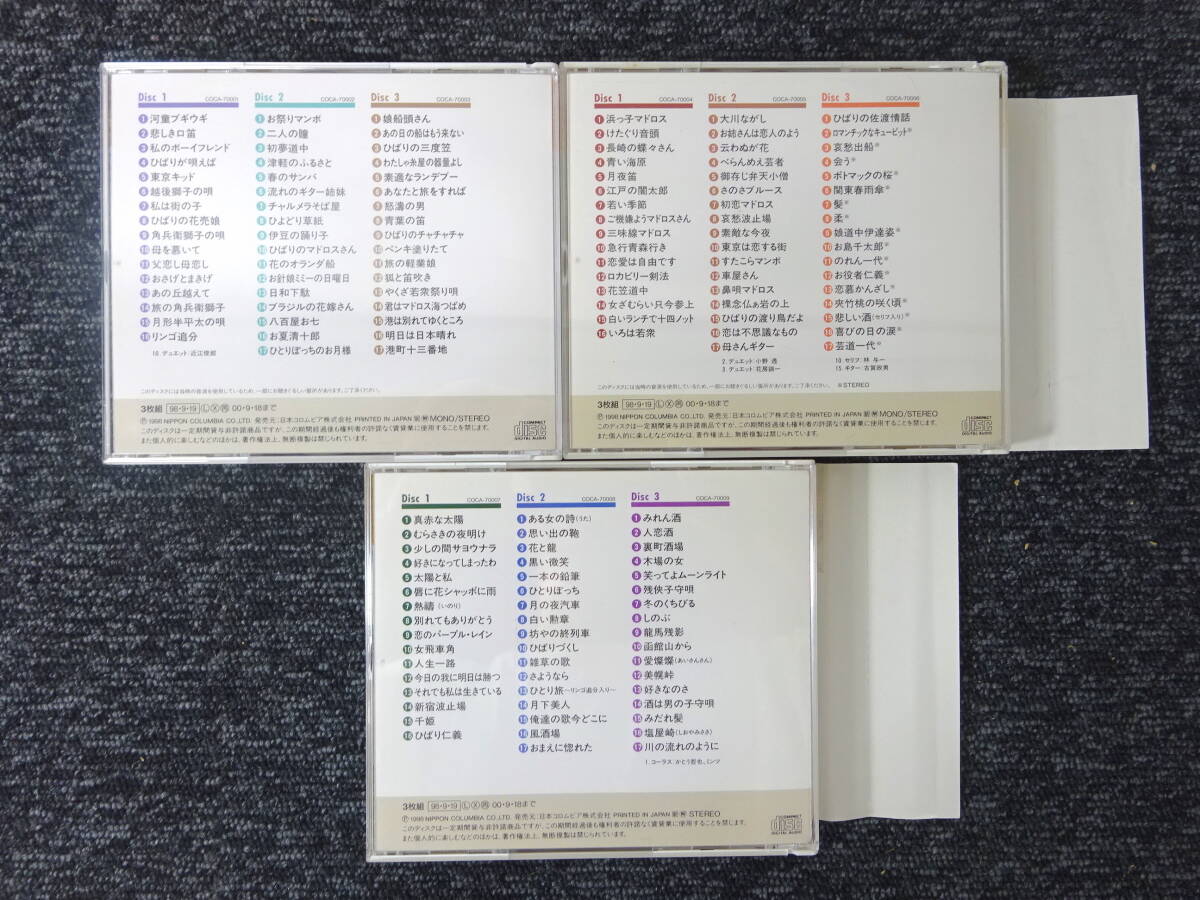 Disc 1 COCA-70001
1 河童ブギウギ
2 悲しき口笛
3 私のボーイフレンド
4 ひばりが唄えば
5 東京キッド
6 越後獅子の唄
7 私は街の子
8 ひばりの花売娘
9 角兵衛獅子の唄
10 母を慕いて
11 父恋し母恋し
12 おさげとまきげ
13 あの丘越えて
14 旅の角兵衛獅子
15 月形半平太の唄
16 リンゴ追分
10. デュエット:近江俊郎
Disc 2 COCA-70002
1 お祭りマンボ
2 二人の瞳
3 初夢道中
4 津軽のふるさと
5 春のサンバ
6 流れのギター姉妹
7 チャルメラそば屋
8 ひよどり草紙
9 伊豆の踊り子
10 ひばりのマドロスさん
11 花のオランダ船
12 お針娘ミミーの日曜日
13 日和下駄
14 ブラジルの花嫁さん
15 八百屋お七
16 お夏清十郎
17 ひとりぼっちのお月様
Disc 3 COCA-70003
1 娘船頭さん
2 あの日の船はもう来ない
3 ひばりの三度笠
4 わたしゃ糸屋の器量よし
5 素適なランデブー
6 あなたと旅をすれば
7 怒濤の男
8 青葉の笛
9 ひばりのチャチャチャ
10 ペンキ塗りたて
11 旅の軽業娘
12 狐と笛吹き
13 やくざ若衆祭り唄
14 君はマドロス海つばめ
15 港は別れてゆくところ
16 明日は日本晴れ
17 港町十三番地
このディスクには当時の音源を使用しているため、一部にお聴きぐるしい箇所があります。ご了承ください。
3枚組 98・9・19 L X 再 00・9・18まで
Ⓟ1998 NIPPON COLUMBIA CO.,LTD. 発売元:日本コロムビア株式会社 PRINTED IN JAPAN MONO/STEREO
このディスクは一定期間貸与非許諾商品ですが、この期間経過後も権利者の許諾なく賃貸業に使用することを禁じます。
また個人的に楽しむなどのほかは、著作権法上、無断複製は禁じられています。
COMPACT disc DIGITAL AUDIO
Disc 1 COCA-70004
1 浜っ子マドロス
2 けたぐり音頭
3 長崎の蝶々さん
4 青い海原
5 月夜笛
6 江戸の闇太郎
7 若い季節
8 ご機嫌ようマドロスさん
9 三味線マドロス
10 急行青森行き
11 恋愛は自由です
12 ロカビリー剣法
13 花笠道中
14 女ざむらい只今参上
15 白いランチで十四ノット
16 いろは若衆
Disc 2 COCA-70005
1 大川ながし
2 お姉さんは恋人のよう
3 云わぬが花
4 べらんめえ芸者
5 御存じ弁天小僧
6 さのさブルース
7 初恋マドロス
8 哀愁波止場
9 素敵な今夜
10 東京は恋する街
11 すたこらマンボ
12 車屋さん
13 鼻唄マドロス
14 裸念仏ぁ岩の上
15 ひばりの渡り鳥だよ
16 恋は不思議なもの
17 母さんギター
2. デュエット:小野 透
3. デュエット:花房錦一
Disc 3 COCA-70006
1 ひばりの佐渡情話
2 ロマンチックなキューピット※
3 哀愁出船※
4 会う※
5 ポトマックの桜※
6 関東春雨傘※
7 髪※
8 柔※
9 娘道中伊達姿※
10 お島千太郎※
11 のれん一代※
12 お役者仁義※
13 恋慕かんざし※
14 夾竹桃の咲く頃※
15 悲しい酒(セリフ入り)※
16 喜びの日の涙※
17 芸道一代※
10. セリフ:林 与一
15. ギター:古賀政男
このディスクには当時の音源を使用しているため、一部にお聴きぐるしい箇所があります。ご了承ください。 ※STEREO
3枚組 98・9・19 L X 再 00・9・18まで
Ⓟ1998 NIPPON COLUMBIA CO.,LTD. 発売元:日本コロムビア株式会社 PRINTED IN JAPAN MONO/STEREO
このディスクは一定期間貸与非許諾商品ですが、この期間経過後も権利者の許諾なく賃貸業に使用することを禁じます。
また個人的に楽しむなどのほかは、著作権法上、無断複製は禁じられています。
COMPACT disc DIGITAL AUDIO
Disc 1 COCA-70007
1 真赤な太陽
2 むらさきの夜明け
3 少しの間サヨウナラ
4 好きになってしまったわ
5 太陽と私
6 唇に花シャッポに雨
7 熱禱(いのり)
8 別れてもありがとう
9 恋のパープル・レイン
10 女飛車角
11 人生一路
12 今日の我に明日は勝つ
13 それでも私は生きている
14 新宿波止場
15 千姫
16 ひばり仁義
Disc 2 COCA-70008
1 ある女の詩(うた)
2 思い出の鞄
3 花と龍
4 黒い微笑
5 一本の鉛筆
6 ひとりぼっち
7 月の夜汽車
8 白い勲章
9 坊やの終列車
10 ひばりづくし
11 雑草の歌
12 さようなら
13 ひとり旅~リンゴ追分入り~
14 月下美人
15 俺達の歌今どこに
16 風酒場
17 おまえに惚れた
Disc 3 COCA-70009
1 みれん酒
2 人恋酒
3 裏町酒場
4 木場の女
5 笑ってよムーンライト
6 残侠子守唄
7 冬のくちびる
8 しのぶ
9 龍馬残影
10 函館山から
11 愛燦燦(あいさんさん)
12 美幌峠
13 好きなのさ
14 酒は男の子守唄
15 みだれ髪
16 塩屋崎(しおやみさき)
17 川の流れのように
1. コーラス:かとう哲也、ミンツ
3枚組 98・9・19 L X 再 00・9・18まで
Ⓟ1998 NIPPON COLUMBIA CO.,LTD. 発売元:日本コロムビア株式会社 PRINTED IN JAPAN STEREO
このディスクは一定期間貸与非許諾商品ですが、この期間経過後も権利者の許諾なく賃貸業に使用することを禁じます。
また個人的に楽しむなどのほかは、著作権法上、無断複製は禁じられています。
COMPACT disc DIGITAL AUDIO